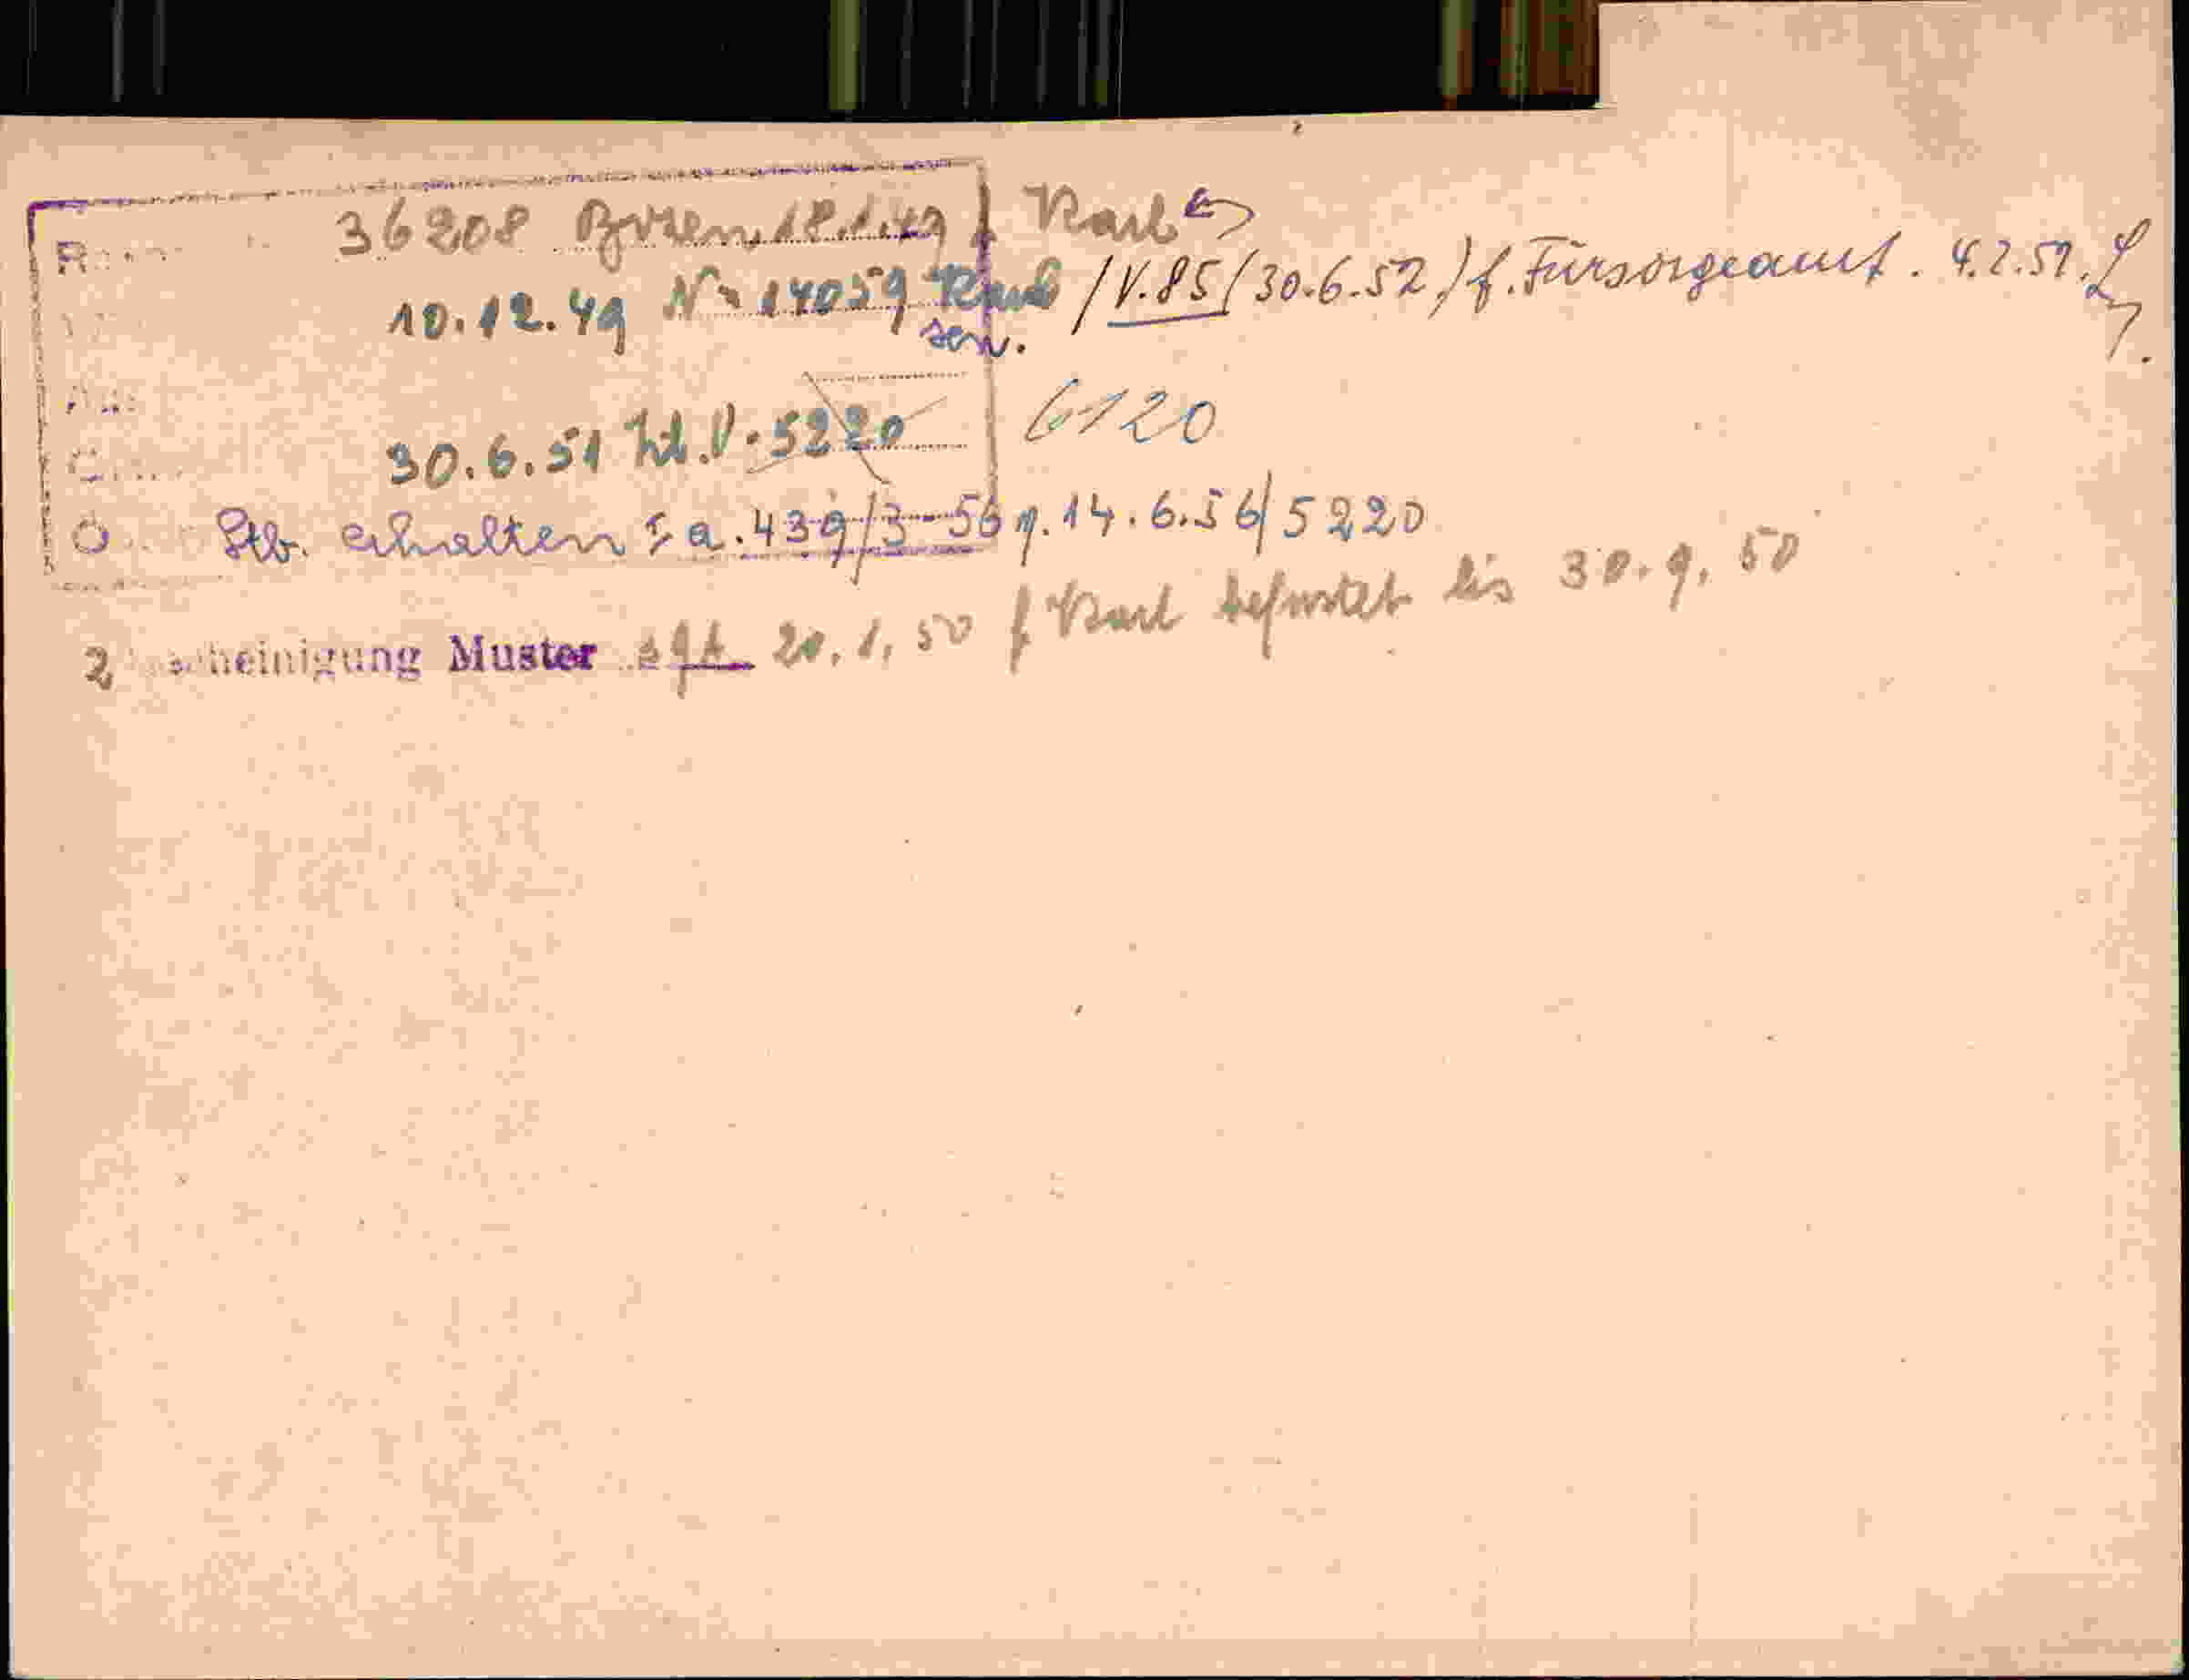 36208 Bozen, 18.1.49 f Karl
10.12.49 Nr 14059 Karl /V.85 (30.6.52) f. Fürsorgeamt. 4.2.51.
sen.
30.6.51 Zl. V. 5220 6120
Stb. erhalten 439/3-56 v. 14.6.56/5220
2 scheinigung Muster 20.1.50 f Karl befristet bis 30.9.50